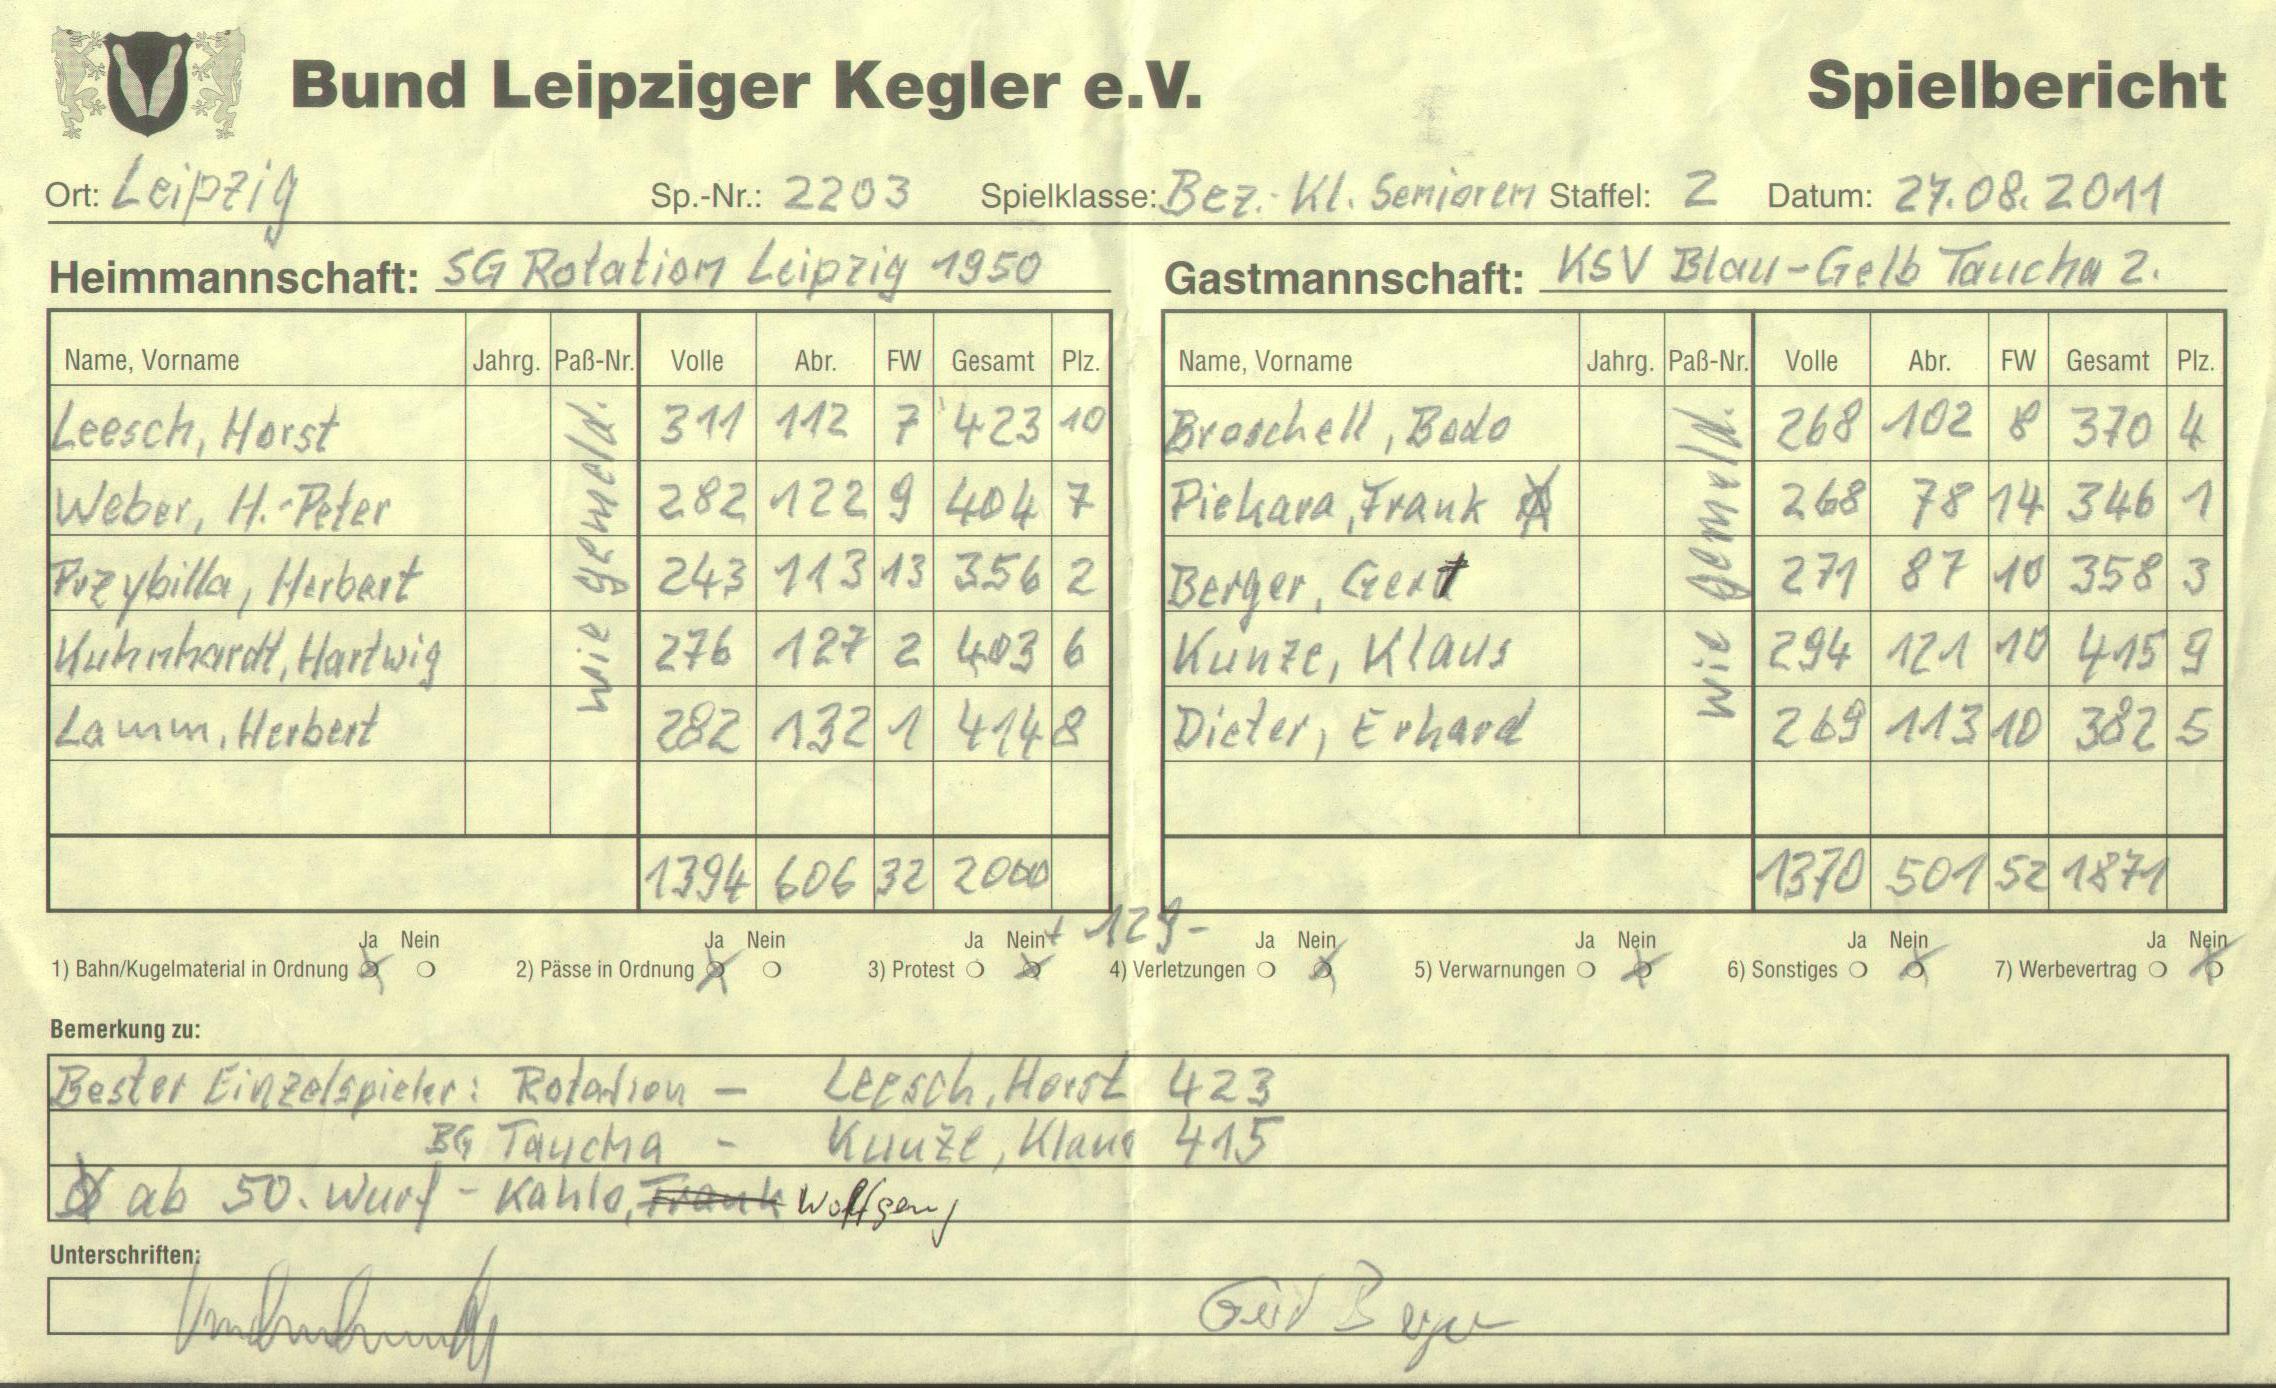 Bund Leipziger Kegler e.V. Spielbericht
Ort: Leipzig Sp.-Nr.: 2203 Spielklasse: Bez.-Kl. Senioren Staffel: 2 Datum: 27.08.2011
Heimmannschaft: SG Rotation Leipzig 1950 Gastmannschaft: KSV Blau-Gelb Taucha 2.
Name, Vorname Jahrg. Paß-Nr. Volle Abr. FW Gesamt Plz. Name, Vorname Jahrg. Paß-Nr. Volle Abr. FW Gesamt Plz.
Leesch, Horst 311 112 7 423 10 Broschell, Bodo 268 102 8 370 4
Weber, H.-Peter 282 122 9 404 7 Piekara, Frank 268 78 14 346 1
Przybilla, Herbert 243 113 13 356 2 Berger, Gert 271 87 10 358 3
Kuhnhardt, Hartwig 276 127 2 403 6 Kunze, Klaus 294 121 10 415 9
Lamm, Herbert 282 132 1 414 8 Dieter, Erhard 269 113 10 382 5
wie gemeld. wie gemeld.
1394 606 32 2000 1370 501 52 1871
+ 129 -
Ja Nein Ja Nein Ja Nein Ja Nein Ja Nein Ja Nein Ja Nein
1) Bahn/Kugelmaterial in Ordnung 2) Pässe in Ordnung 3) Protest 4) Verletzungen 5) Verwarnungen 6) Sonstiges 7) Werbevertrag
Bemerkung zu:
Bester Einzelspieler: Rotation - Leesch, Horst 423
BG Taucha - Kunze, Klaus 415
ab 50. Wurf - Kahlo, Frank Wolfgang
Unterschriften:
Berger